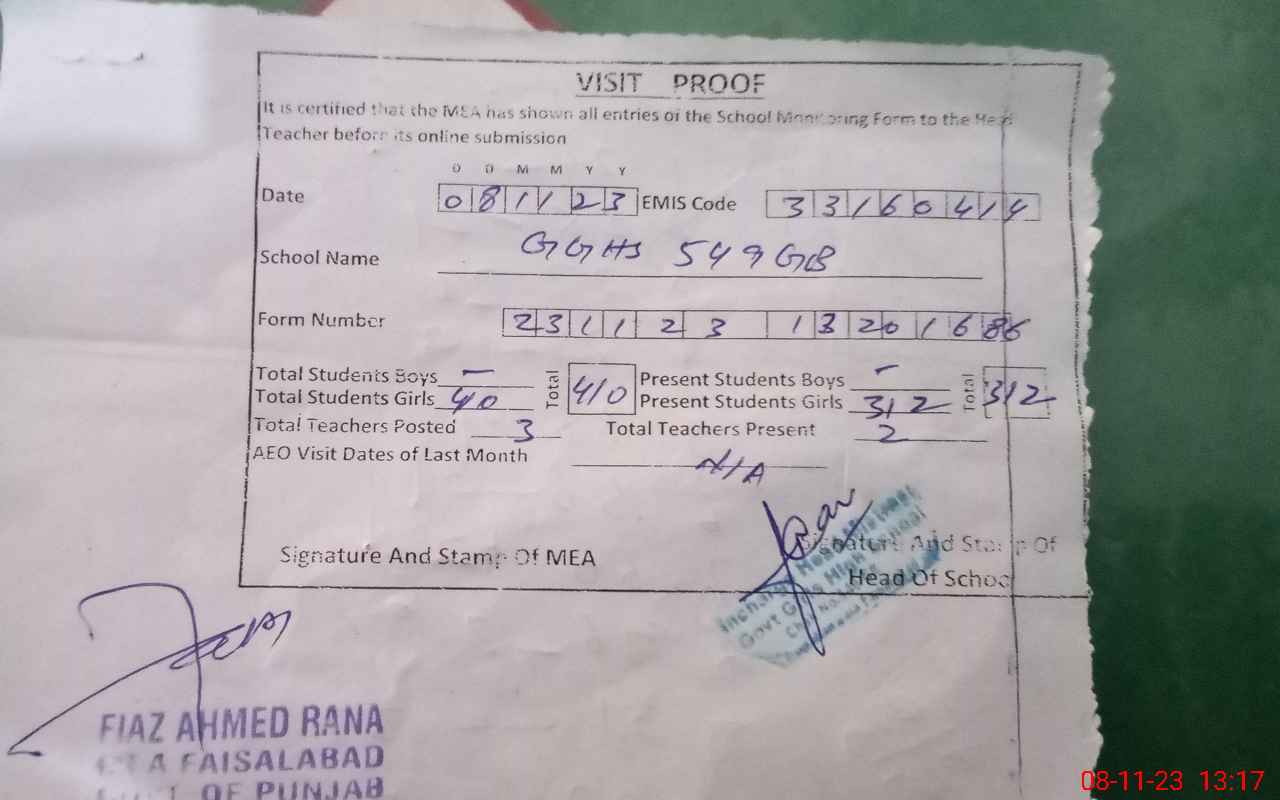 VISIT PROOF
It is certified that the MEA has shown all entries of the School Monitoring Form to the Head
Teacher before its online submission
D D M M Y Y
Date 081123 EMIS Code 33160414
School Name GGHS 549 GB
Form Number 231123 13201686
Total Students Boys — Total 410 Present Students Boys — Total 312
Total Students Girls 410 Present Students Girls 312
Total Teachers Posted 3 Total Teachers Present 2
AEO Visit Dates of Last Month N/A
Signature And Stamp Of MEA
Signature And Stamp Of
Head Of School
Incharge
Govt Girls High School
FIAZ AHMED RANA
FAISALABAD
OF PUNJAB
08-11-23 13:17